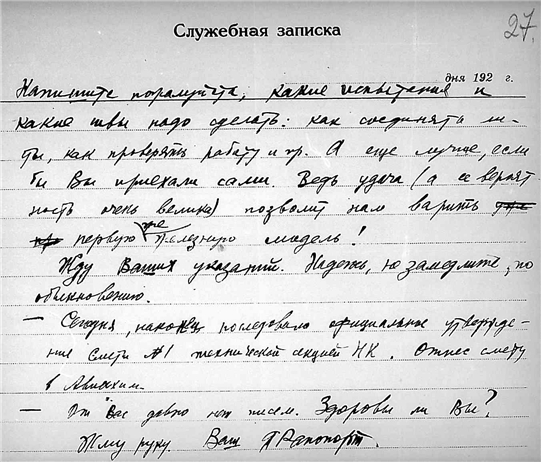 27.
Служебная записка
дня 192 г.
Напишите пожалуйста, какие испытания и
какие швы надо сделать: как соединять ли-
ты, как проверять работу и пр. А еще лучше, если
бы Вы приехали сами. Ведь удача (а ее вероят
ность очень велика) позволит нам варить уже
первую же железную модель!
Жду Ваших указаний. Надеюсь, не замедлите, по
обыкновению.
— Сегодня, наконец, последовало официальное утвержде-
ние сметы №1 технической секцией НК. Отнес смету
в Авиахим.
— От Вас давно нет писем. Здоровы ли Вы?
Жму руку. Ваш Рапопорт.